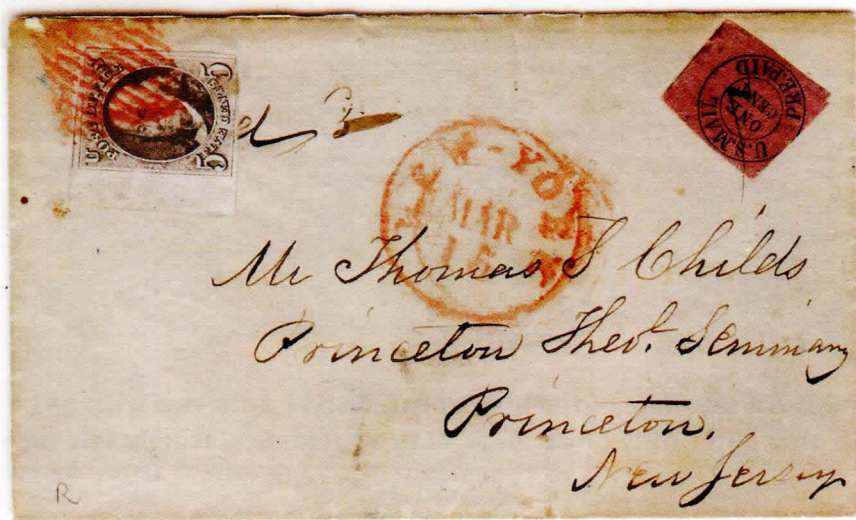 POST OFFICE
U.S. MAIL
ONE
CENT
PREPAID
NEW-YORK
MAR
15
Mr Thomas S Childs
Princeton Theol. Seminary
Princeton.
New Jersey
R